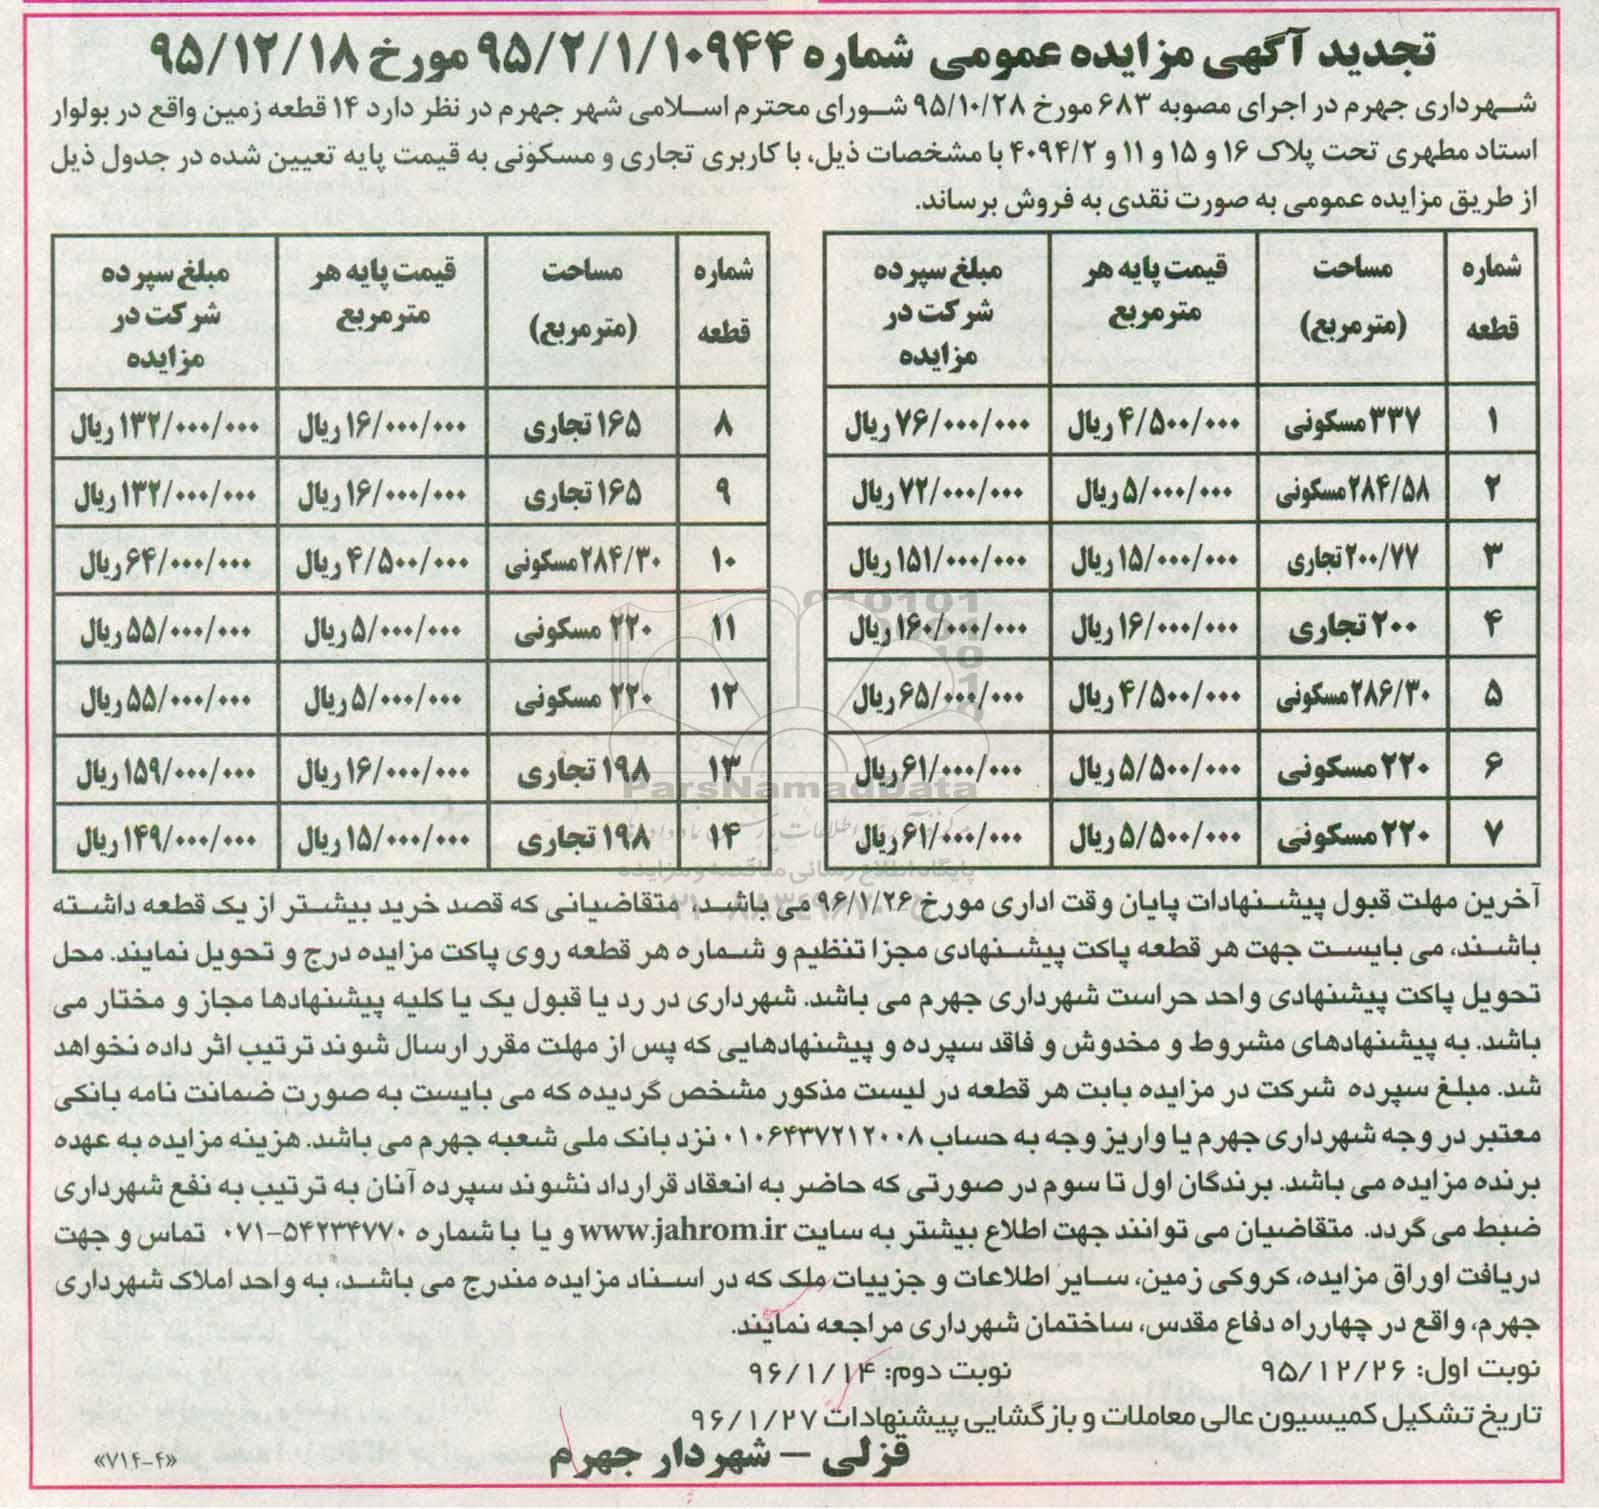 تجدید آگهی مزایده عمومی شماره ۹۵/۲/۱/۱۰۹۴۴ مورخ ۹۵/۱۲/۱۸
شهرداری جهرم در اجرای مصوبه ۶۸۳ مورخ ۹۵/۱۰/۲۸ شورای محترم اسلامی شهر جهرم در نظر دارد ۱۴ قطعه زمین واقع در بولوار
استاد مطهری تحت پلاک ۱۶ و ۱۵ و ۱۱ و ۴۰۹۴/۲ با مشخصات ذیل، با کاربری تجاری و مسکونی به قیمت پایه تعیین شده در جدول ذیل
از طریق مزایده عمومی به صورت نقدی به فروش برساند.
شماره قطعه | مساحت (مترمربع) | قیمت پایه هر مترمربع | مبلغ سپرده شرکت در مزایده
۱ | ۳۳۷ مسکونی | ۴/۵۰۰/۰۰۰ ریال | ۷۶/۰۰۰/۰۰۰ ریال
۲ | ۲۸۴/۵۸ مسکونی | ۵/۰۰۰/۰۰۰ ریال | ۷۲/۰۰۰/۰۰۰ ریال
۳ | ۲۰۰/۷۷ تجاری | ۱۵/۰۰۰/۰۰۰ ریال | ۱۵۱/۰۰۰/۰۰۰ ریال
۴ | ۲۰۰ تجاری | ۱۶/۰۰۰/۰۰۰ ریال | ۱۶۰/۰۰۰/۰۰۰ ریال
۵ | ۲۸۶/۳۰ مسکونی | ۴/۵۰۰/۰۰۰ ریال | ۶۵/۰۰۰/۰۰۰ ریال
۶ | ۲۲۰ مسکونی | ۵/۵۰۰/۰۰۰ ریال | ۶۱/۰۰۰/۰۰۰ ریال
۷ | ۲۲۰ مسکونی | ۵/۵۰۰/۰۰۰ ریال | ۶۱/۰۰۰/۰۰۰ ریال
شماره قطعه | مساحت (مترمربع) | قیمت پایه هر مترمربع | مبلغ سپرده شرکت در مزایده
۸ | ۱۶۵ تجاری | ۱۶/۰۰۰/۰۰۰ ریال | ۱۳۲/۰۰۰/۰۰۰ ریال
۹ | ۱۶۵ تجاری | ۱۶/۰۰۰/۰۰۰ ریال | ۱۳۲/۰۰۰/۰۰۰ ریال
۱۰ | ۲۸۴/۳۰ مسکونی | ۴/۵۰۰/۰۰۰ ریال | ۶۴/۰۰۰/۰۰۰ ریال
۱۱ | ۲۲۰ مسکونی | ۵/۰۰۰/۰۰۰ ریال | ۵۵/۰۰۰/۰۰۰ ریال
۱۲ | ۲۲۰ مسکونی | ۵/۰۰۰/۰۰۰ ریال | ۵۵/۰۰۰/۰۰۰ ریال
۱۳ | ۱۹۸ تجاری | ۱۶/۰۰۰/۰۰۰ ریال | ۱۵۹/۰۰۰/۰۰۰ ریال
۱۴ | ۱۹۸ تجاری | ۱۵/۰۰۰/۰۰۰ ریال | ۱۴۹/۰۰۰/۰۰۰ ریال
ParsNamadData
پایگاه اطلاع رسانی مناقصه و مزایده
آخرین مهلت قبول پیشنهادات پایان وقت اداری مورخ ۹۶/۱/۲۶ می باشد، متقاضیانی که قصد خرید بیشتر از یک قطعه داشته
باشند، می بایست جهت هر قطعه پاکت پیشنهادی مجزا تنظیم و شماره هر قطعه روی پاکت مزایده درج و تحویل نمایند. محل
تحویل پاکت پیشنهادی واحد حراست شهرداری جهرم می باشد. شهرداری در رد یا قبول یک یا کلیه پیشنهادها مجاز و مختار می
باشد. به پیشنهادهای مشروط و مخدوش و فاقد سپرده و پیشنهادهایی که پس از مهلت مقرر ارسال شوند ترتیب اثر داده نخواهد
شد. مبلغ سپرده شرکت در مزایده بابت هر قطعه در لیست مذکور مشخص گردیده که می بایست به صورت ضمانت نامه بانکی
معتبر در وجه شهرداری جهرم یا واریز وجه به حساب ۰۱۰۶۴۳۷۲۱۲۰۰۸ نزد بانک ملی شعبه جهرم می باشد. هزینه مزایده به عهده
برنده مزایده می باشد. برندگان اول تا سوم در صورتی که حاضر به انعقاد قرارداد نشوند سپرده آنان به ترتیب به نفع شهرداری
ضبط می گردد. متقاضیان می توانند جهت اطلاع بیشتر به سایت www.jahrom.ir و یا با شماره ۵۴۲۳۴۷۷۰-۰۷۱ تماس و جهت
دریافت اوراق مزایده، کروکی زمین، سایر اطلاعات و جزییات ملک که در اسناد مزایده مندرج می باشد، به واحد املاک شهرداری
جهرم، واقع در چهارراه دفاع مقدس، ساختمان شهرداری مراجعه نمایند.
نوبت اول: ۹۵/۱۲/۲۶ نوبت دوم: ۹۶/۱/۱۴
تاریخ تشکیل کمیسیون عالی معاملات و بازگشایی پیشنهادات ۹۶/۱/۲۷
قزلی – شهردار جهرم
«۷۱۴-۴»